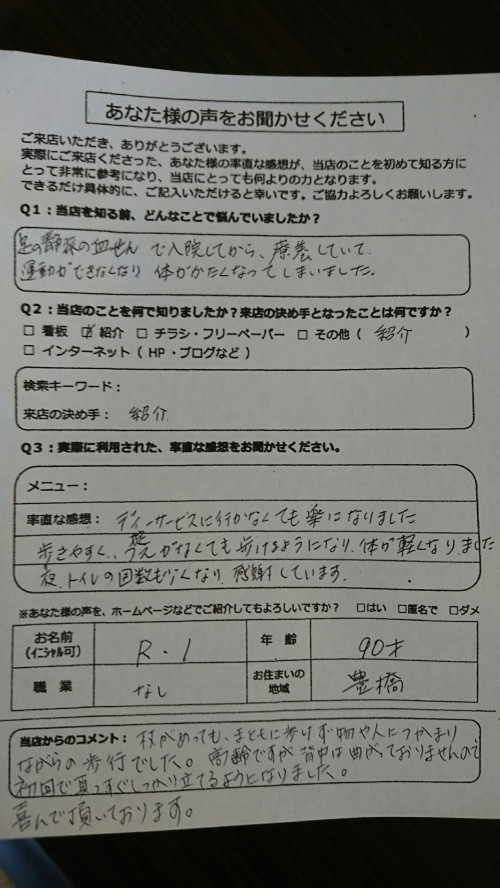 あなた様の声をお聞かせください
ご来店いただき、ありがとうございます。
実際にご来店くださった、あなた様の率直な感想が、当店のことを初めて知る方に
とって非常に参考になり、当店にとっても何よりの力となります。
できるだけ具体的に、ご記入いただけると幸いです。ご協力よろしくお願いします。
Q1：当店を知る前、どんなことで悩んでいましたか？
足の静脈の血せんで入院してから、療養していて、
運動ができなくなり体がかたくなってしまいました。
Q2：当店のことを何で知りましたか？来店の決め手となったことは何ですか？
□ 看板 ☑ 紹介 □ チラシ・フリーペーパー □ その他（ 紹介 ）
□ インターネット（HP・ブログなど）
検索キーワード：
来店の決め手： 紹介
Q3：実際に利用された、率直な感想をお聞かせください。
メニュー：
率直な感想： ディーサービスに行かなくても楽になりました
歩きやすく、がなくても歩けるようになり、体が軽くなりました
夜、トイレの回数も少くなり、感謝しています。
※あなた様の声を、ホームページなどでご紹介してもよろしいですか？ □はい □匿名で □ダメ
お名前（イニシャル可） R・I 年齢 90才
職業 なし お住まいの地域 豊橋
当店からのコメント： 杖があっても、まともに歩けず物や人につかまり
ながらの歩行でした。高齢ですが背中は曲がっておりませんので
初回で真っすぐしっかり立てるようになりました。
喜んで頂いております。